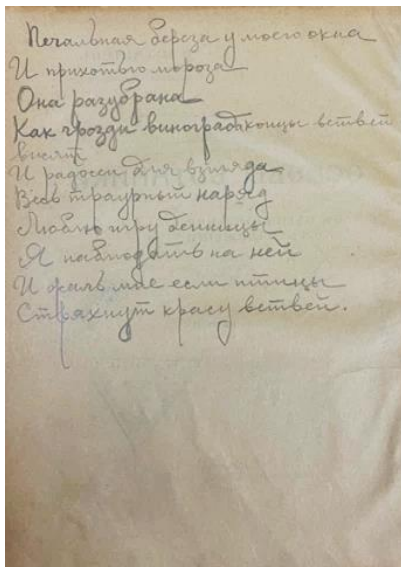 Печальная береза у моего окна
И прихотью мороза
Она разубрана
Как грозди винограда концы ветвей
висят
И радосен для взгляда
Весь траурный наряд
Люблю игру денницы
Я наблюдать на ней
И жаль мне если птицы
Стряхнут красу ветвей.